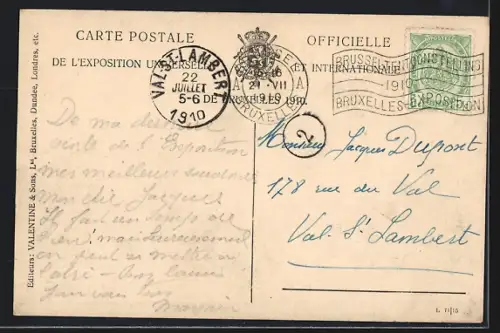 CARTE POSTALE OFFICIELLE
DE L'EXPOSITION UNIVERSELLE ET INTERNATIONALE
DE BRUXELLES 1910.
VAL-ST-LAMBERT
22
JUILLET
5-6
1910
21 VII
1910
BRUXELLES
BRUSSEL TENTOONSTELLING
1910
BRUXELLES-EXPOSITION
2
Monsieur Jacques Dupont
178 rue du Val
Val St Lambert
De ma dernière
visite de l'Exposition
mes meilleurs souvenirs
mon cher Jacques
Il fait un temps de
on peut se mettre à
l'abri - Bons baisers
Editeurs: VALENTINE & Sons, Ld, Bruxelles, Dundee, Londres, etc.